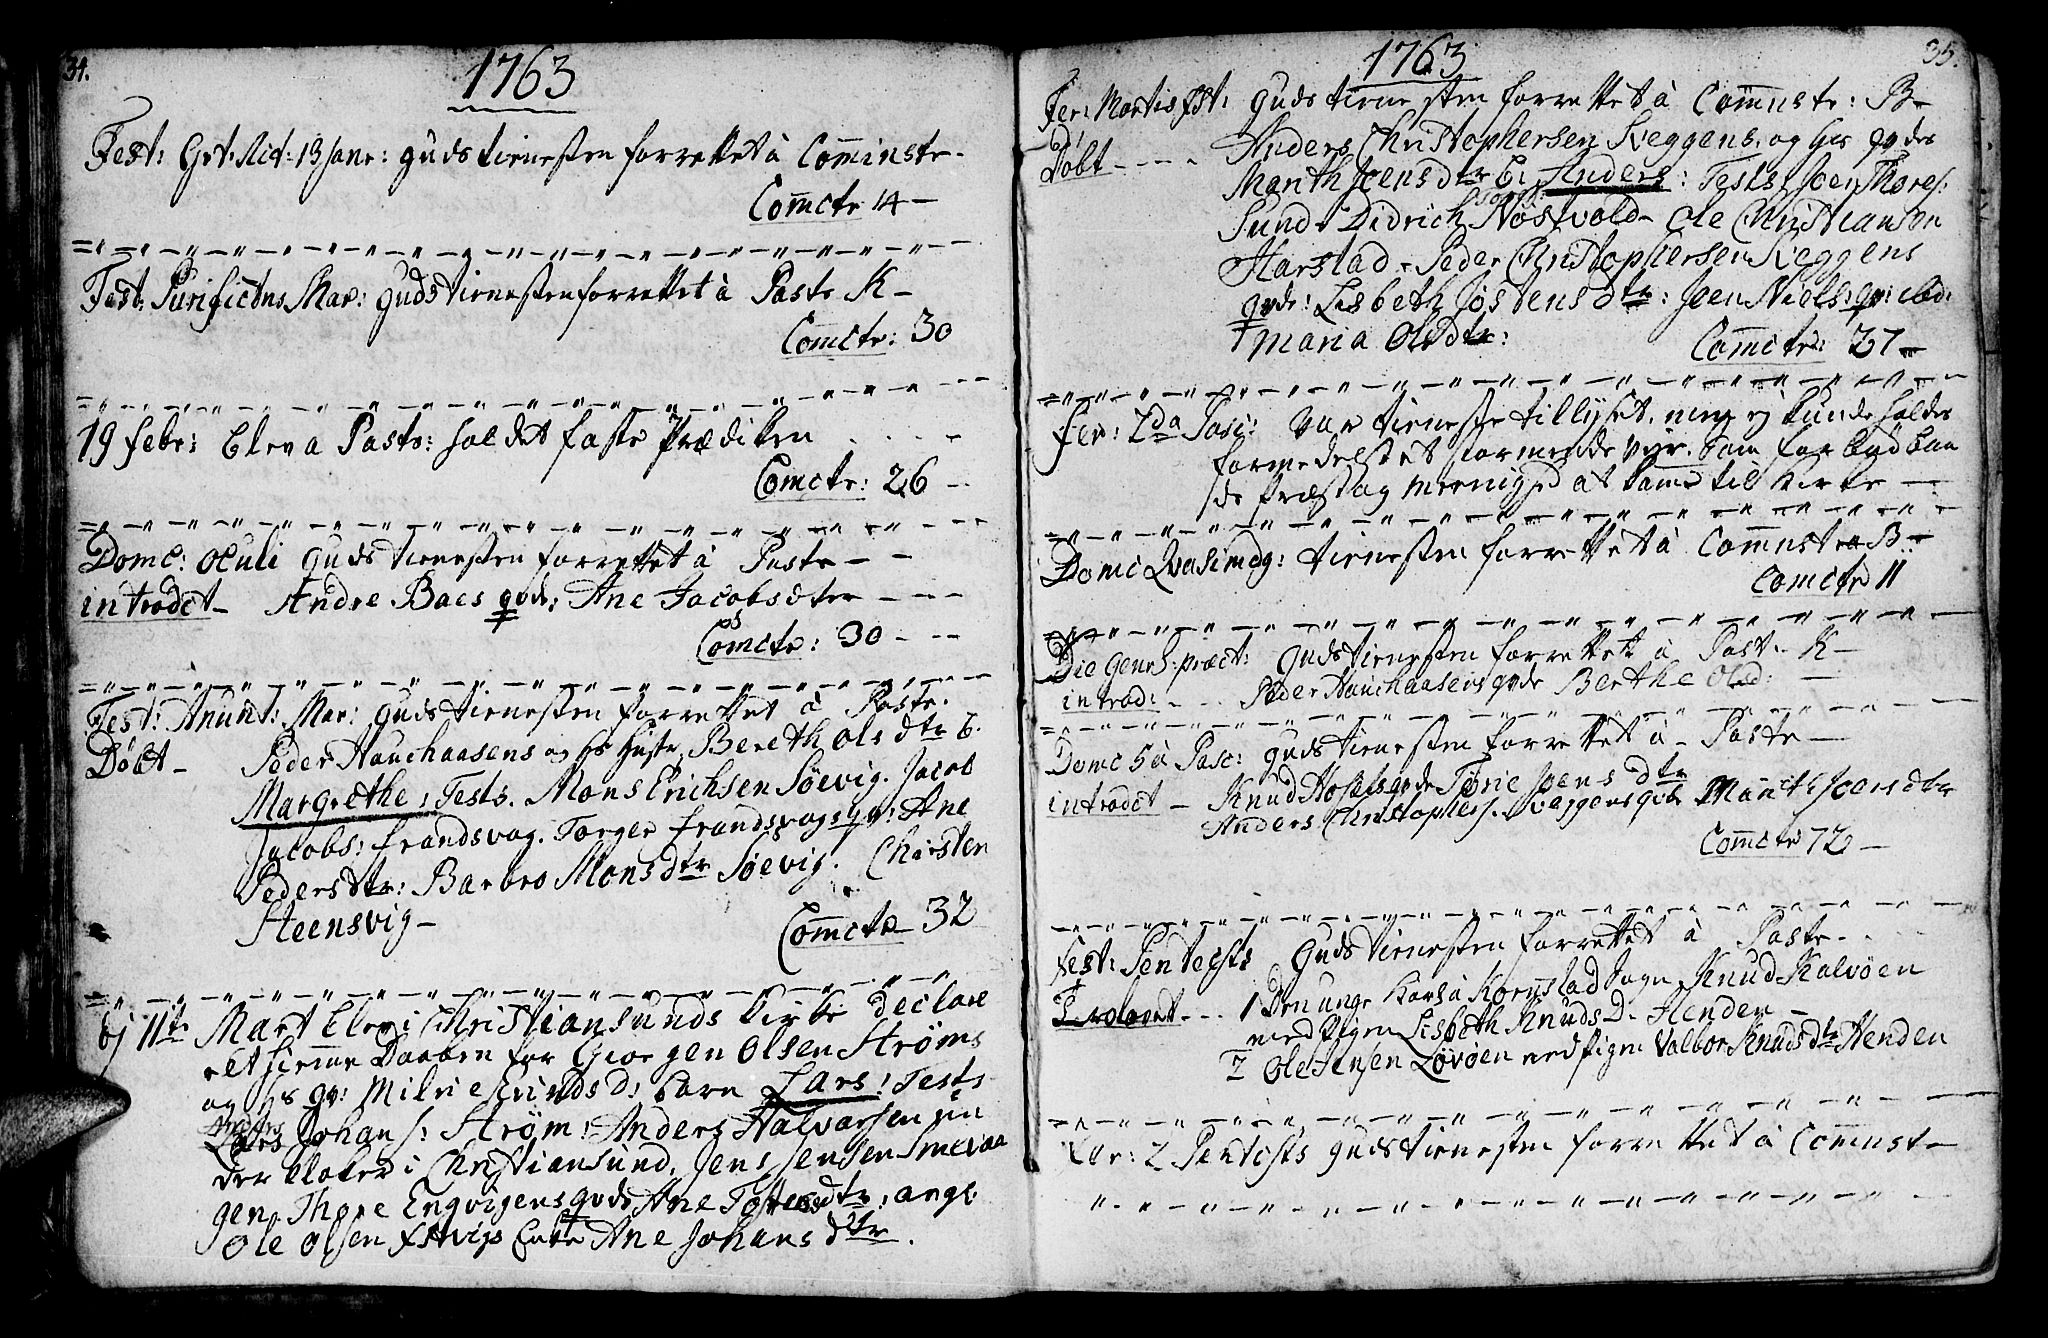 34.
1763
Fest: Grt: Act: 13 Janr: gudstienesten forrettet à Cominste.
Comcte 14 –
Fest: Purifictns Mar: gudstienesten forrettet à Paste K –
Comcte: 30
19 febr: bleva Paste: holdet faste Prædiken
Comcte: 26 –
Domc: Oculi gudstienesten forrettet à Paste –
introdct – Andre Baes qvde: Ane Jacobsdter –
Comcte: 30 –
Fest: Anunt: Mar: gudstienesten forrettet à Paste.
Döbt – Peder Hauchaasens og hs Hustr Bereth Olsdtr b.
Margrethe, Tests. Mons Erichsen Söevig. Jacob
Jacobs: frandsvag. Torger frandsvags qv: Ane
Pedersdtr: Barbro Monsdtr Söevig. Chirsten
Steensvig –
Comcte 32
11te Mart blev i Christiansunds Kirke declare
ret hiemme Daaben for Giorgen Olsen Ströms
og hs qv: Milrie Erindsd: barn Lars: Tests
Lars Johans: Ström, Anders Halvorsen
der kloker i Christiansund, Jens Jensen Smevaa
gen, Thore Engvigens qvde Ane Tostensdtr, ange:
Ole Olsen Ane Johansdtr.
35.
1763
Fer: Martis Pst: gudstienesten forrettet à Comnste: B –
Döbt – – – Anders Christophersen Kveggens, og hs qvdes
Marith Joensdtr b: Anders: Tests, Joen Thores:
Sund. Didrich Nostvold – Ole Christiansen
Harstad – Peder Christophersen Kveggens
qvde: Lisbeth Jostensdtr: Joen Niels: qv:
Maria Olsdtr:
Comcte: 27 –
Fer: 2da Pasc: var tieneste tillyset, men ej kunde holdes
formedelst et stormende vejr, som forbydbaa
de Præst og meenighed at komme til Kirke –
Domc Qvasimdg: tienesten forrettet à Comnste B –
Comcte 11
Die Genrl: præct: Gudstienesten forrettet à Past. K –
introd: – Peder Hauchaasens qvde Berthe Olsd: –
Domc 5 à Pasc: gudstienesten forrettet à Paste –
introdct – Knud Hosets qvde Torie Joensdtr
Anders Christophers. Kveggens qvde Marith Joensdter
Comcte 72 –
Fest: Pentecsts Gudstienesten forrettet à Paste.
Trolovet – – 1 Den unge Karl à Kornstad Sogn Knud Kalvöen
med Pigen Lisbeth Knuds D. Henden –
2 Ole Jensen Lövöen med Pigen Valbor Knudsdtr Henden
Fer: 2 Pentcsts gudstienesten forrettet à Comnst –